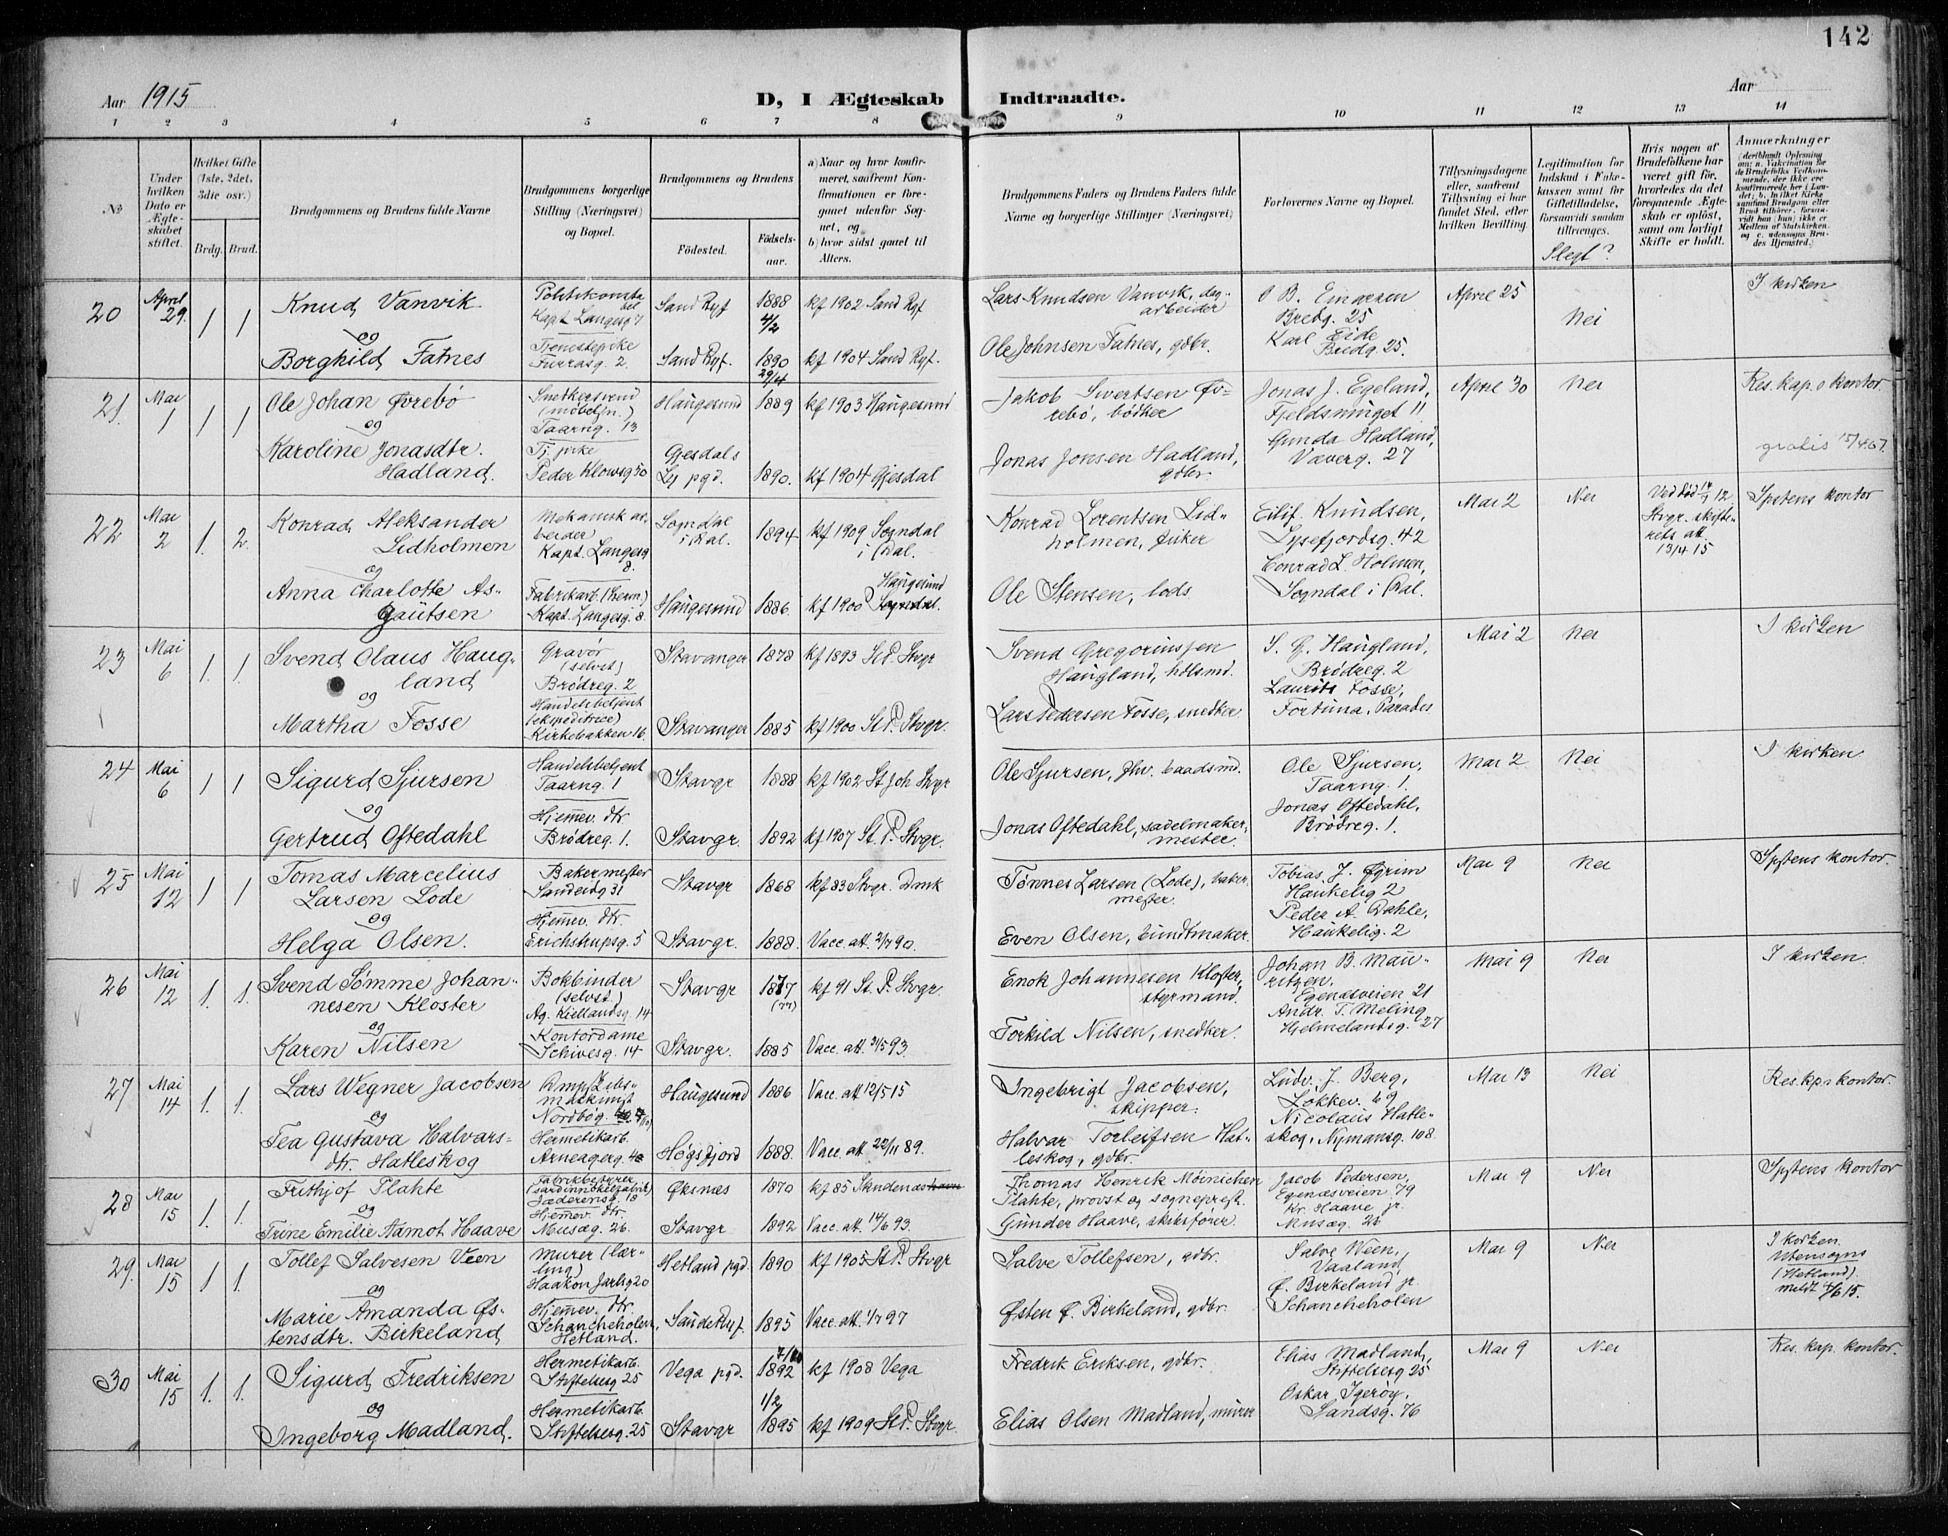 142
Aar 1915
D, I Ægteskab Indtraadte.
Aar
1 2 3 4 5 6 7 8 9 10 11 12 13 14
No
Under hvilken Dato er Ægteskabet stiftet.
Hvilket Gifte (1ste, 2det, 3die osv.)
Brdg. Brud.
Brudgommens og Brudens fulde Navne
Brudgommens borgerlige Stilling (Næringsvei) og Bopæl.
Brudgommens og Brudens
Fødested. Fødselsaar.
a) Naar og hvor konfirmeret, saafremt Konfirmationen er foregaaet udenfor Sognet, og
b) hvor sidst gaaet til Alters.
Brudgommens Faders og Brudens Faders fulde Navne og borgerlige Stillinger (Næringsvei)
Forlovernes Navne og Bopæl.
Tillysningsdagene eller, saafremt Tillysning ei har fundet Sted, efter hvilken Bevilling.
Legitimation for Indskud i Enkekassen samt for Giftetilladelse, forsaavidt saadan tiltrænges.
Slegt?
Hvis nogen af Brudefolkene har været gift før, hvorledes da det foregaaende Ægteskab er opløst, samt om lovligt Skifte er holdt.
Anmærkninger
20 April 29. 1 1
Knud Vanvik
Kapt. Langesg 7
Sand Ryf 1888 4/2 kf 1902 Sand Ryf
Lars Knudsen Vanvik, dagarbeider
O B. Einarsen
Bredg. 25
April 25 Nei I kirken
og
Borghild Fatnes
Tjenestepike
Furrasg. 2.
Sand Ryf. 1890 29/4 kf 1904 Sand Ryf.
Ole Johnsen Fatnes, gdbr.
Karl Eide
Bredg. 25.
21. Mai 1 1 1
Ole Johan Øvrebø
Snedkersvend (møbelsn.)
Taarng. 13
Haugesund 1889 kf 1903 Haugesund
Jakob Sivertsen Øvrebø, bødker
Jonas J. Egeland,
April 30 Nei Res. kap.s kontor
og
Karoline Jonasdtr. Hadland.
Tj. pike
Peder Klowsg 50
Gjesdal Ly pgd. 1890. kf 1904 Gjesdal
Jonas Jonsen Hadland, gdbr.
Gunda Hadland,
Væverg. 27
gratis
22 Mai 2 1. 2.
Konrad Aleksander Lidholmen
Mekanisk arbeider
Kapt. Langesg 8.
Sogndal i Dal. 1894 kf 1909 Sogndal i Dal
Konrad Lorentsen Lidholmen, fisker
Eilif Knudsen,
Lysefjordsg. 42
Mai 2 Nei
Ved død 14/1 12 Stvgr. skifterets att. 13/4 15
Sptens kontor
og
Anna Charlotte Asgautsen
Fabrikarb. (herm.)
Kapt. Langesg. 8.
Haugesund 1886. kf 1900 Haugesund
Ole Stensen, lods
Conrad L. Holmen,
Sogndal i Dal.
23 Mai 6 1. 1.
Svend Olaus Haugland
Gravør (selvst)
Brødreg. 2
Stavanger 1878 kf 1893 St.P. Stvgr
Svend Gregoriussen Haugland, hdlsmd.
S. G. Haugland,
Brødreg. 2
Mai 2 Nei I kirken
og
Martha Fosse
Handelsbetjent (ekspeditrice)
Kirkebakken 16.
Stavanger 1885 kf 1900 St.P. Stvgr.
Lars Pedersen Fosse, snedker
Laurits Fosse,
Fortuna, Parades
24 Mai 6 1 1
Sigurd Sjursen
Handelsbetjent
Taarng. 1
Stavgr 1888 kf 1902 St Joh Stvgr
Ole Sjursen, fhv. baadsmd.
Ole Sjursen,
Taarng. 1.
Mai 2 Nei I kirken
og
Gertrud Oftedahl
Hjemmev. dtr
Brødreg. 1.
Stavgr. 1892 kf 1907 St.P. Stvgr.
Jonas Oftedahl, sadelmakermester
Jonas Oftedahl,
Brødreg. 1.
25 Mai 12 1 1
Tomas Marcelius Larsen Lode
Bakermester
Sandeidg 31
Stavgr 1868 kf 83 Stvgr. Dmk
Tønnes Larsen (Lode), bakermester.
Tobias J. Øgrim
Haukelig 2
Mai 9 Nei Sptens kontor.
og
Helga Olsen.
Hjemmev. dtr.
Erichstrupsg. 5
Stavgr. 1888. Vacc. att. 2/7 90.
Even Olsen, buntmaker.
Peder A. Dahle,
Haukelig. 2
26 Mai 12 1. 1.
Svend Sømme Johannesen Kloster
Bokbinder (selvst.)
Ag. Kiellandsg. 14
Stavgr 1877 (77) kf 91 St.P. Stvgr.
Enok Johannesen Kloster, styrmand.
Johan B. Mauritzen,
Egenæsveien 21
Mai 9 Nei I kirken.
og
Karen Nilsen
Kontordame
Schivesg. 14
Stavgr. 1885 Vacc. att. 31/5 93.
Torkild Nilsen, snedker.
Andr. T. Meling
Hjelmelandsg. 27
27 Mai 14 1. 1.
Lars Wegner Jacobsen
Haugesund 1886 Vacc. att 12/5 15
Ingebrigt Jacobsen, skipper.
Ludv. J. Berg,
Løkkev. 69
Mai 13 Nei Res. kp.s kontor.
og
Tea Gustava Halvarsdtr. Hatleskog
Hermetikarb.
Arneagerg. 48
Høgsfjord 1888. Vacc. att 22/11 89.
Halvar Torleifsen Hatleskog, gdbr.
Nicolaus Hatleskog, Nymansg. 108.
28 Mai 15 1. 1.
Frithjof Plahte
Fabrikbestyrer
Jæderensg. 18
Øksnes 1870 kf 85 Sandenæs
Thomas Henrik Möinichen Plahte, provst og sogneprest.
Jacob Pedersen,
Egenæsveien 79
Mai 9 Nei Sptens kontor
og
Trine Emilie Aamot Haave
Hjemmev. dtr.
Musæg. 26.
Stavgr 1892 Vacc. att. 14/6 93.
Gunder Haave, skibsfører.
Kr. Haave jr.
Musæg. 26
29. Mai 15 1 1.
Tollef Salvesen Veen
Murer (lærling)
Haakon Jarlsg 20
Hetland pgd. 1890 kf 1905 St.P. Stvgr
Salve Tollefsen, gdbr.
Salve Ween,
Vaaland,
Mai 9 Nei
I kirken. Utensogns (Hetland) meldt 1/6 15.
og
Marie Amanda Østensdtr. Birkeland
Hjemmev. dtr.
Schancheholen, Hetland.
Saude Ryf. 1895 Vacc. att. 1/7 97
Østen Ø. Birkeland, gdbr.
Ø. Birkeland jr.
Schancheholen
30 Mai 15 1. 1.
Sigurd Fredriksen
Hermetikarb.
Stiftelsesg 25
Vega pgd. 1892 kf 1908 Vega
Fredrik Eriksen, gdbr.
Elias Madland,
Stiftelsesg 25
Mai 9 Nei Res. kap. kontor.
og
Ingeborg Madland.
Hermetikarb.
Stiftelsesg. 25
Stavgr 1/2 1895 kf 1909 St.P. Stvgr.
Elias Olsen Madland, murer
Oskar Igerøy,
Sandsg. 76